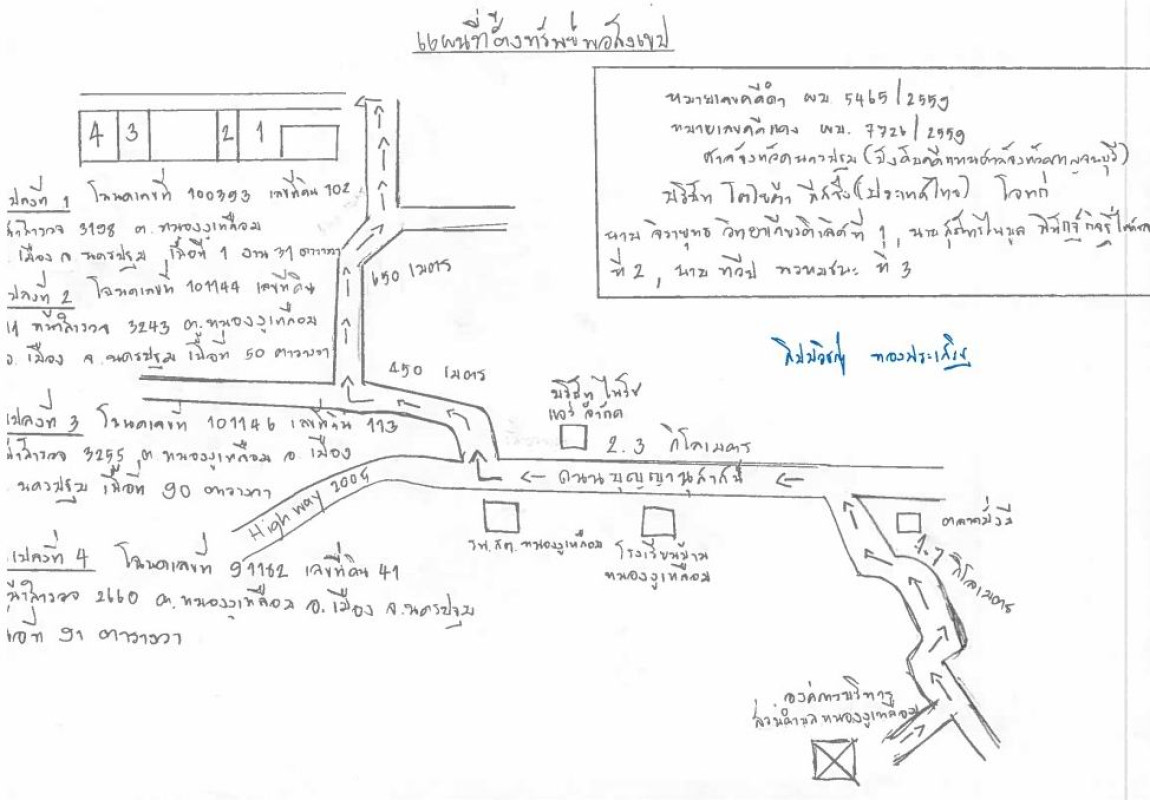 แผนที่ตั้งทรัพย์พอสังเขป
หมายเลขคดีดำ ผบ. 5465/2559
หมายเลขคดีแดง ผบ. 7726/2559
ศาลจังหวัดนครปฐม (บังคับคดีแทนศาลจังหวัดกาญจนบุรี)
บริษัท โตโยต้า ลีสซิ่ง (ประเทศไทย) โจทก์
นาย จิรายุทธ วิทยาเกียรติเลิศ ที่ 1, นาย
ที่ 2, นาย ทวีป พรหมชนะ ที่ 3
4 3 2 1
แปลงที่ 1 โฉนดเลขที่ 100393 เลขที่ดิน 102
หน้าสำรวจ 3198 ต. หนองงูเหลือม
อ. เมือง จ. นครปฐม เนื้อที่ 1 งาน 31 ตารางวา
แปลงที่ 2 โฉนดเลขที่ 101144 เลขที่ดิน
หน้าสำรวจ 3243 ต. หนองงูเหลือม
อ. เมือง จ. นครปฐม เนื้อที่ 50 ตารางวา
แปลงที่ 3 โฉนดเลขที่ 101146 เลขที่ดิน 113
หน้าสำรวจ 3255 ต. หนองงูเหลือม อ. เมือง
นครปฐม เนื้อที่ 90 ตารางวา
แปลงที่ 4 โฉนดเลขที่ 91162 เลขที่ดิน 41
หน้าสำรวจ 2660 ต. หนองงูเหลือม อ. เมือง จ. นครปฐม
เนื้อที่ 91 ตารางวา
650 เมตร
450 เมตร
บริษัท ไนโซ
แอร์ จำกัด
2.3 กิโลเมตร
ถนน บุญญานุสาสน์
High way 2005
รพ.สต. หนองงูเหลือม
โรงเรียนบ้าน
หนองงูเหลือม
1.7 กิโลเมตร
องค์การบริหาร
ส่วนตำบลหนองงูเหลือม
ทองประเสริฐ